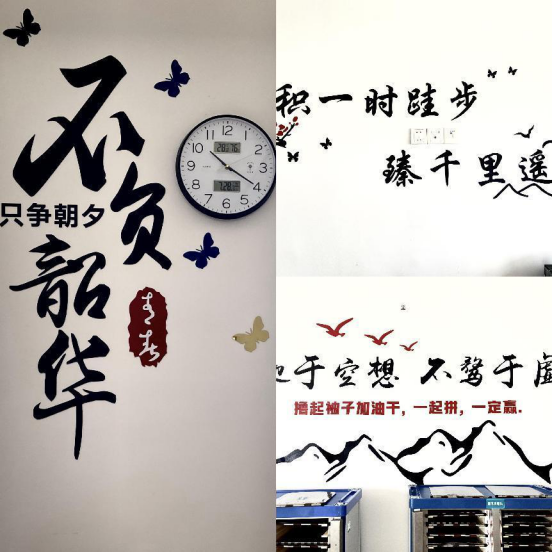 不负
只争朝夕
韶华
青春
12 1 2 3 4 5 6 7 8 9 10 11
积一时跬步
臻千里遥
于空想 不骛于虚
撸起袖子加油干，一起拼，一定赢.